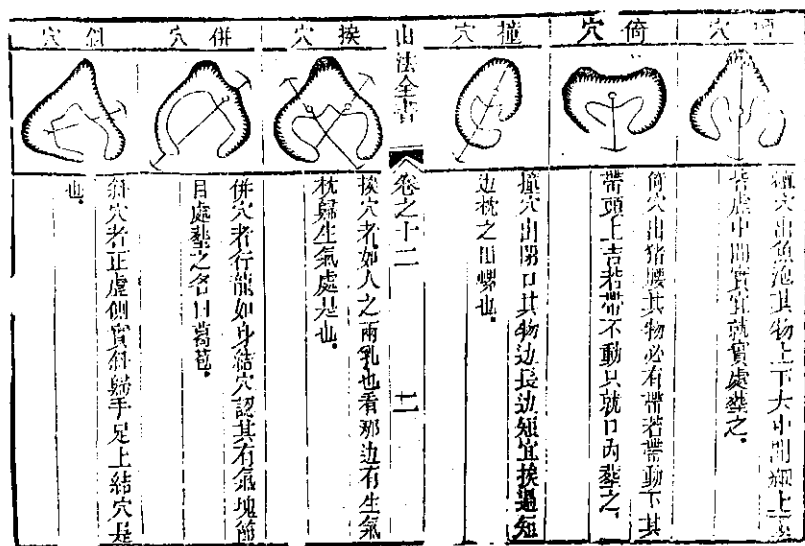 穴
穴出魚泡其物上下大中間細上下
皆虛中間實宜就實處塟之
倚穴
倚穴出猪腰其物必有帶若帶動下其
帶頭上吉若帶不動只就口內塟之
撞穴
撞穴出開口其物边長边短宜挨過短
边枕之田螺也
山法全書
卷之十二
二
挨穴
挨穴者如人之兩乳也看那边有生氣
枕歸生氣處是也
併穴
併穴者行龍如身結穴認其有氣塊節
目處塟之名曰葛苞
斜穴
斜穴者正虛側實斜歸手足上結穴是
也